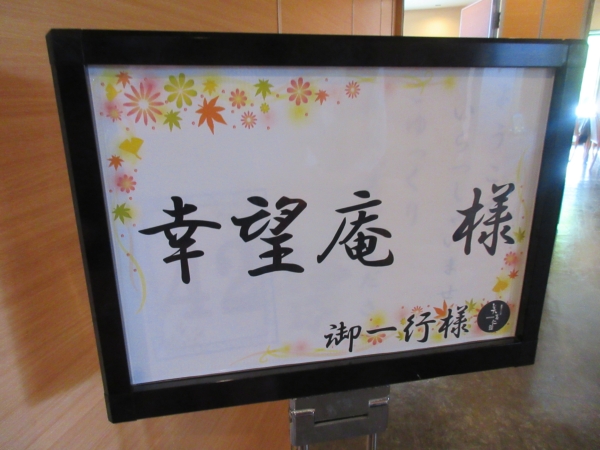 幸望庵 様
御一行様